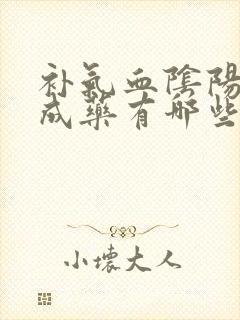 补氣血陰陽
成藥有哪些
小壞大人